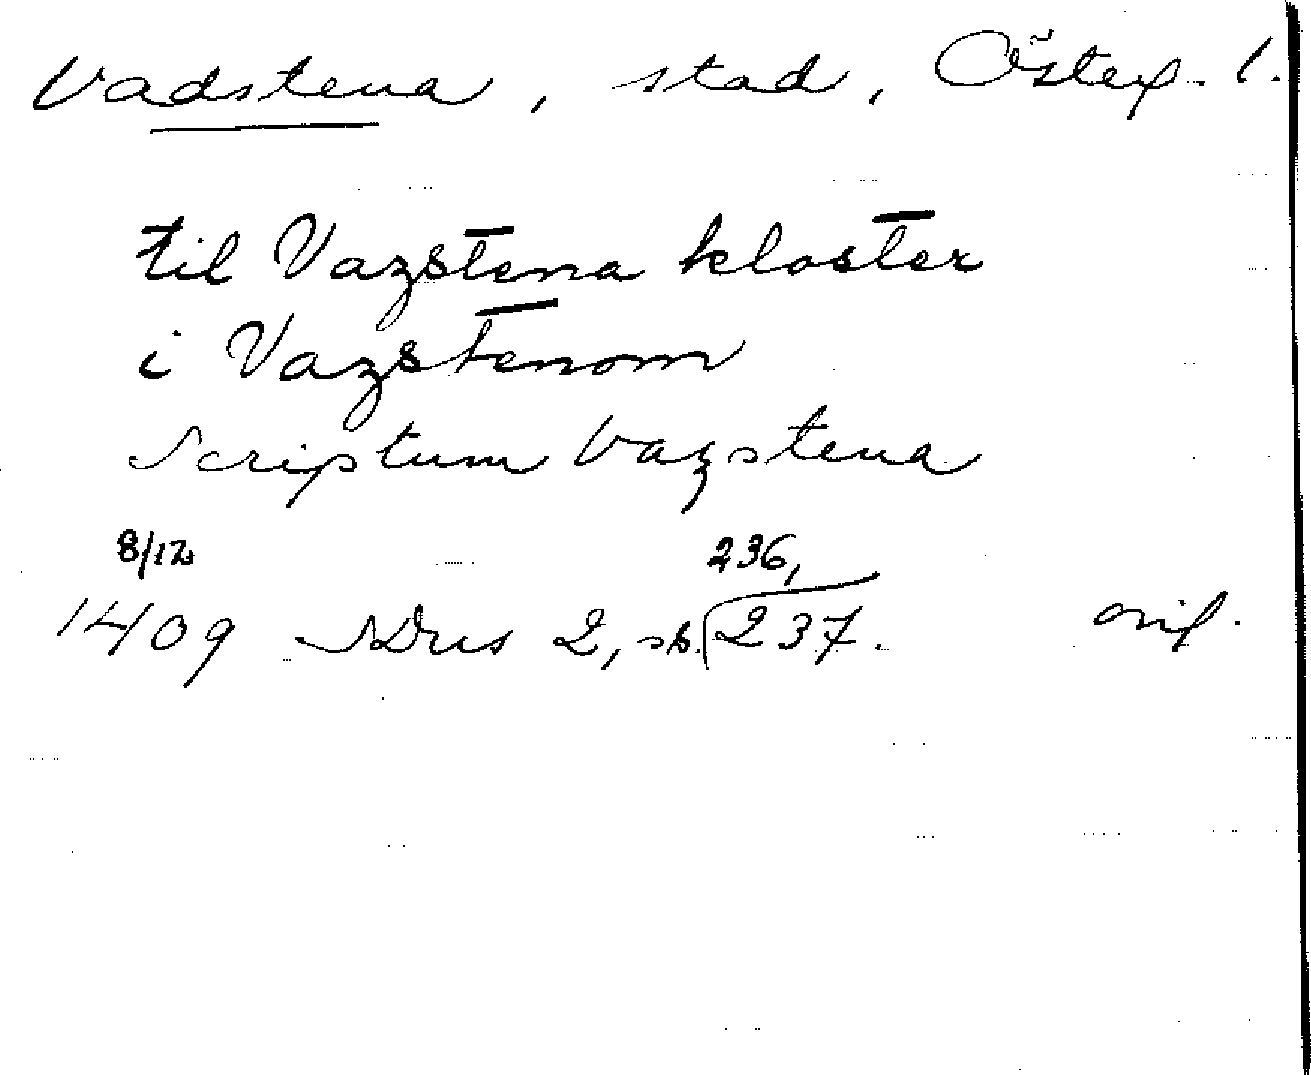 Vadstena, stad, Österg. l.
til Vazstena kloster
i Vazstenom
Scriptum Vazstena
8/12 236,
1409 SDns 2, sk. 237. orig.